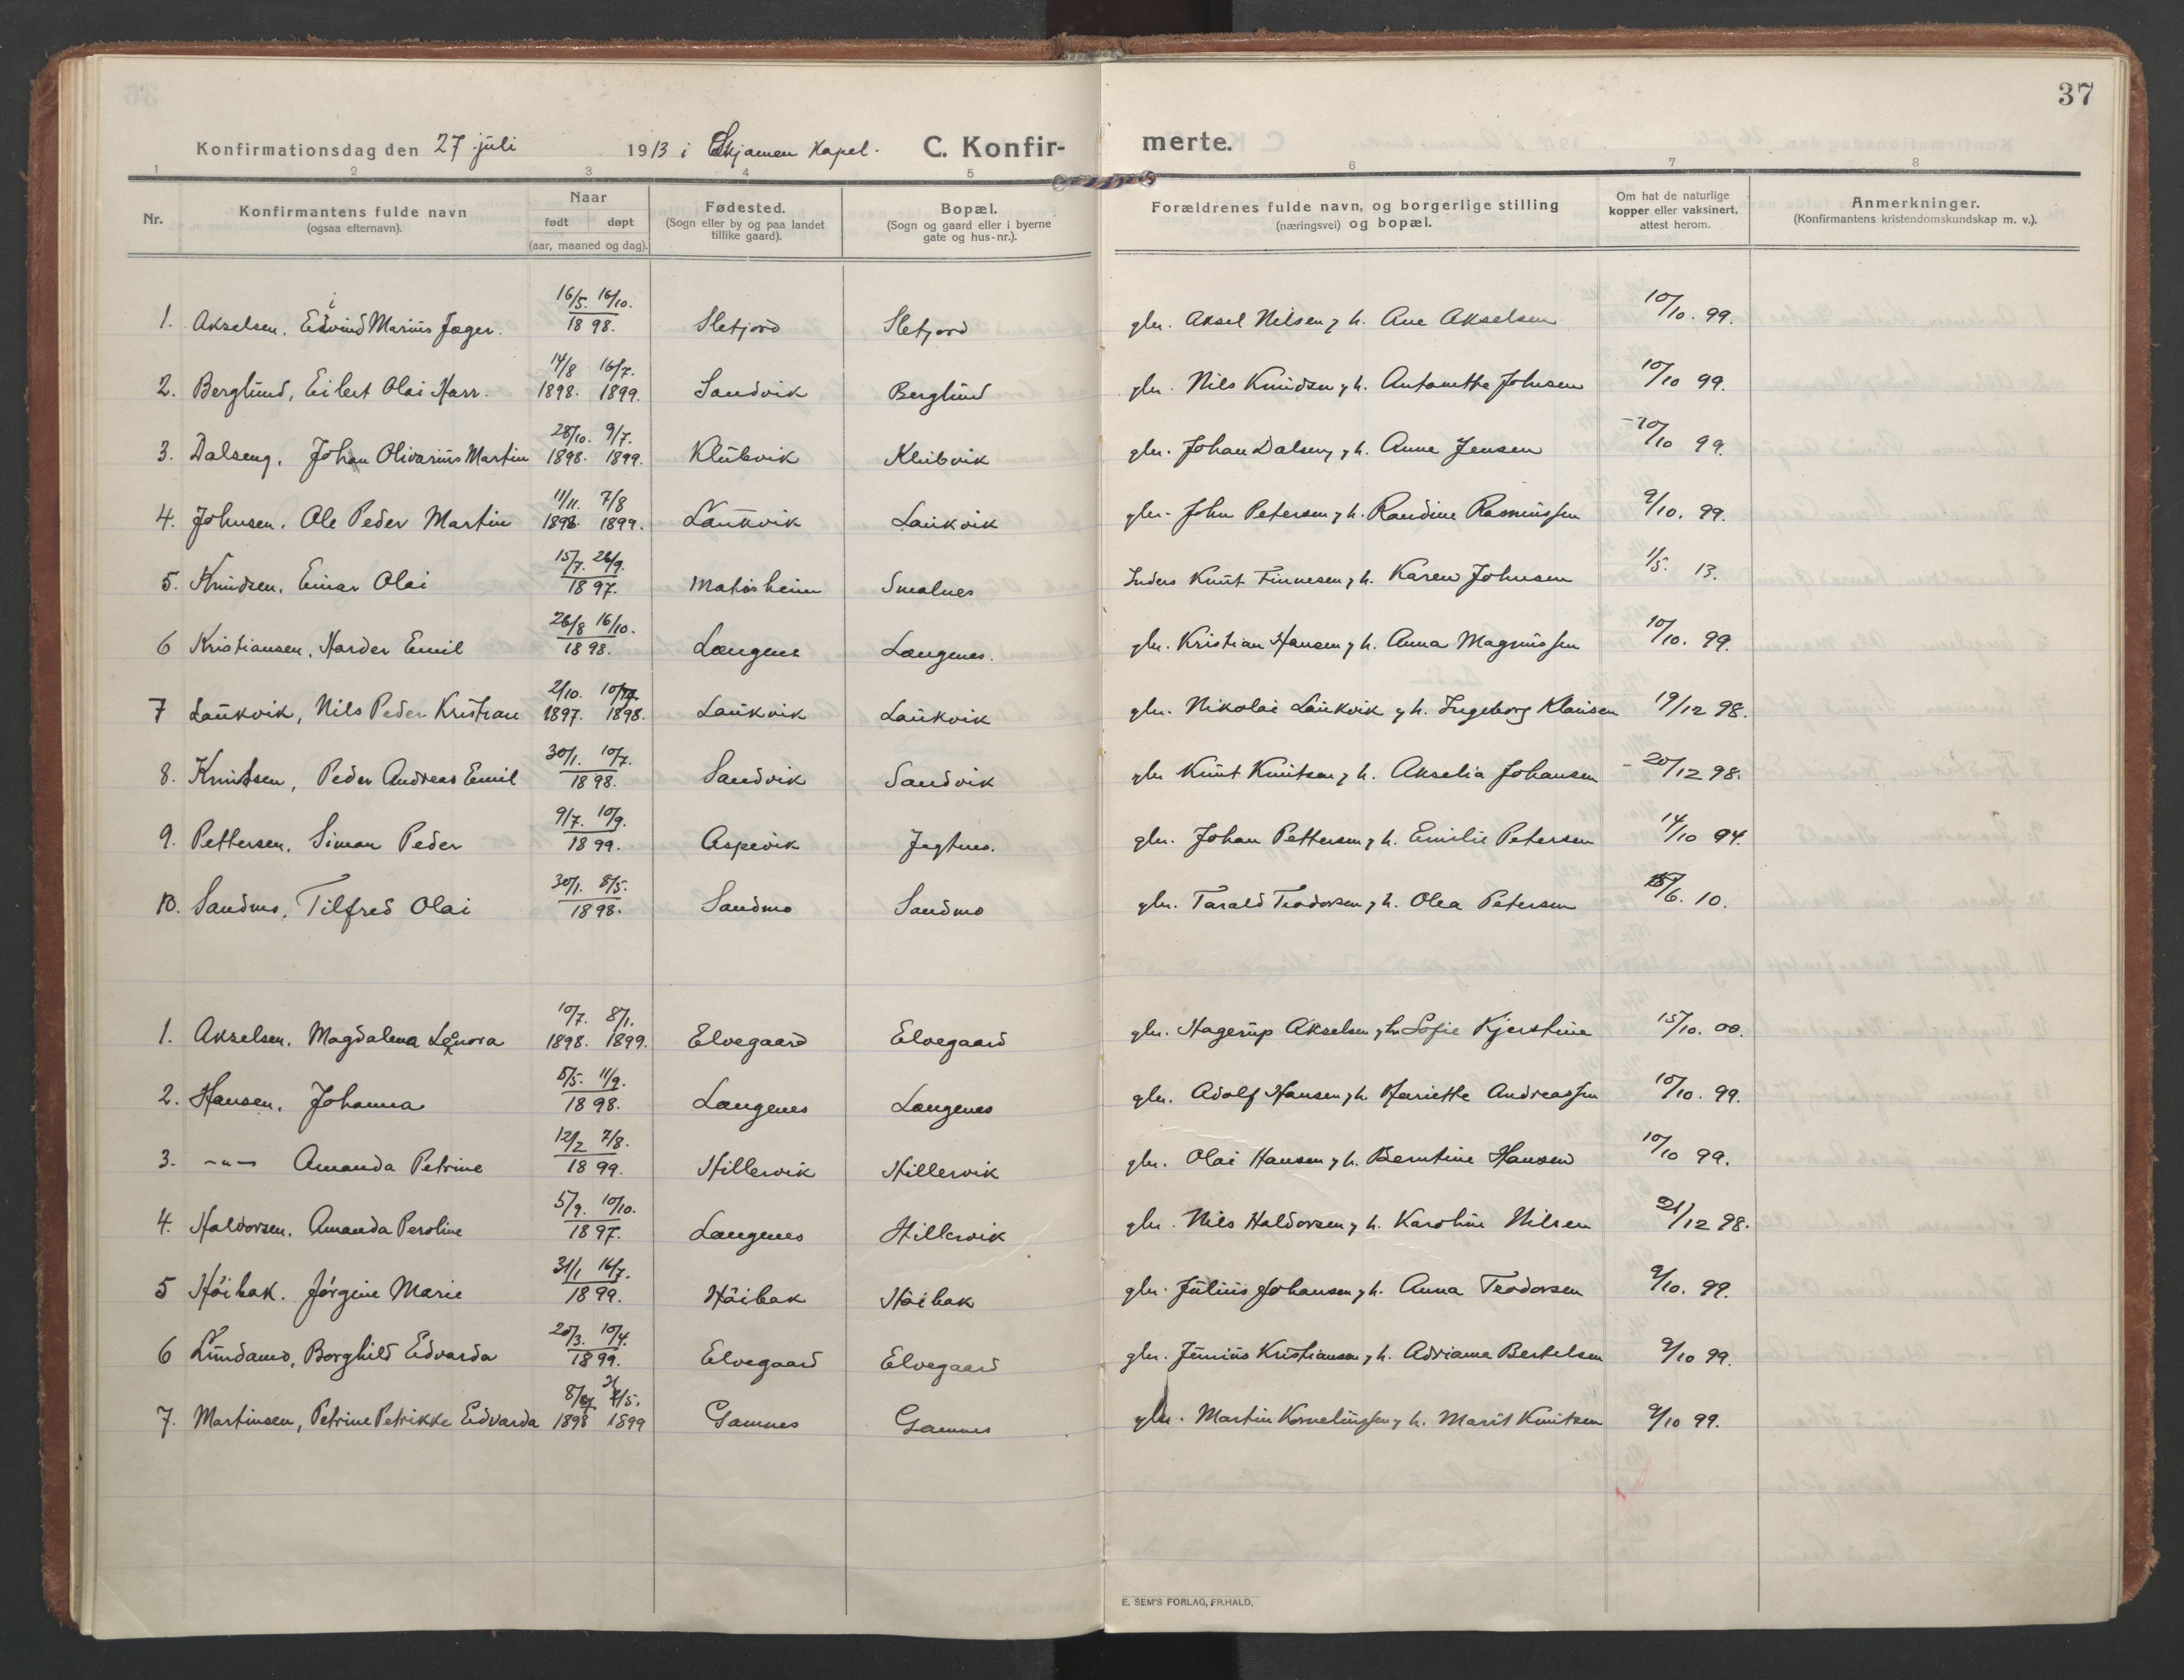 37
Konfirmationsdag den 27 juli 1913 i Skjomen Kapel. C. Konfir- merte.
1 2 3 4 5 6 7 8
Nr. Konfirmantens fulde navn (ogsaa efternavn). Naar født døpt (aar, maaned og dag). Fødested. (Sogn eller by og paa landet tillike gaard). Bopæl. (Sogn og gaard eller i byerne gate og hus-nr.). Forældrenes fulde navn, og borgerlige stilling (næringsvei) og bopæl. Om hat de naturlige kopper eller vaksinert, attest herom. Anmerkninger. (Konfirmantens kristendomskundskap m. v.).
1. Akselsen, Eivind Marius Jæger. 16/5. 16/10. 1898. Sletjord Sletjord gbr. Aksel Nilsen, h. Ane Akselsen 10/10. 99.
2. Berglund, Eilert Olai Harr. 14/8 16/7. 1898. 1899. Sandvik Berglund gbr. Nils Knudsen, h. Antonette Johnsen 10/10 99.
3. Dalseng, Johan Olivarius Martin 28/10. 9/7. 1898. 1899. Klubvik Klubvik gbr. Johan Dalseng, h. Anne Jensen 10/10 99.
4. Johnsen, Ole Peder Martin 11/11. 7/8 1898. 1899. Laukvik Laukvik gbr. John Petersen, h. Randine Rasmussen 9/10. 99.
5. Knudsen, Einar Olai 15/7. 26/9. 1897. Smalnes Knut Finnesen, h. Karen Johnsen 1/5. 13.
6 Kristiansen, Harder Emil 26/8 16/10. 1898. Langenes Langenes. gbr. Kristian Hansen, h. Anna Magnussen 10/10. 99.
7 Laukvik, Nils Peder Kristian 2/10. 1897. 1898. Laukvik Laukvik gbr. Nikolai Laukvik, h. Ingeborg Klausen 19/12 98.
8. Knutsen, Peder Andreas Emil 30/1. 10/7. 1898. Sandvik Sandvik gbr Knut Knutsen, h. Akselia Johansen 20/12 98.
9. Pettersen, Simon Peder 9/7. 10/9. 1899. Aspevik Jagtnes. gbr. Johan Pettersen, h. Emilie Petersen 14/10 94.
10. Sandmo, Tilfred Olai 30/1. 8/5. 1898. Sandmo Sandmo gbr. Tarald Teodorsen, h. Olea Petersen 6. 10.
1. Akselsen, Magdalena Lenora 10/7. 8/1. 1898. 1899. Elvegaard Elvegaard gbr. Hagerup Akselsen, h. Sofie Kjerstine 15/10. 00.
2. Hansen, Johanna 5/5. 11/9. 1898. Langenes Langenes gbr. Adolf Hansen, h. Hariette Andreassen 10/10. 99.
3. -"- Amanda Petrine 12/2 7/8. 1899. Hillervik Hillervik gbr. Olai Hansen, h. Berntine Hansen 10/10 99.
4. Haldorsen, Amanda Peroline 5/9. 10/10. 1897. Langenes Hillervik gbr. Nils Haldorsen, h. Karoline Nilsen 21/12 98.
5 Høibak, Jørgine Marie 31/1 16/7. 1899. Høibak Høibak gbr. Julius Johansen, h. Anna Teodorsen 9/10. 99.
6 Lundamo, Borghild Edvarda 20/3. 10/4. 1899. Elvegaard Elvegaard gbr. Junius Kristiansen, h. Adriana Bertelsen 9/10 99.
7. Martinsen, Petrine Petrikke Edvarda 1898 1899 Gamnes Gamnes gbr. Martin Korneliussen, h. Marit Knutsen 9/10 99.
E. SEM'S FORLAG, FR.HALD.